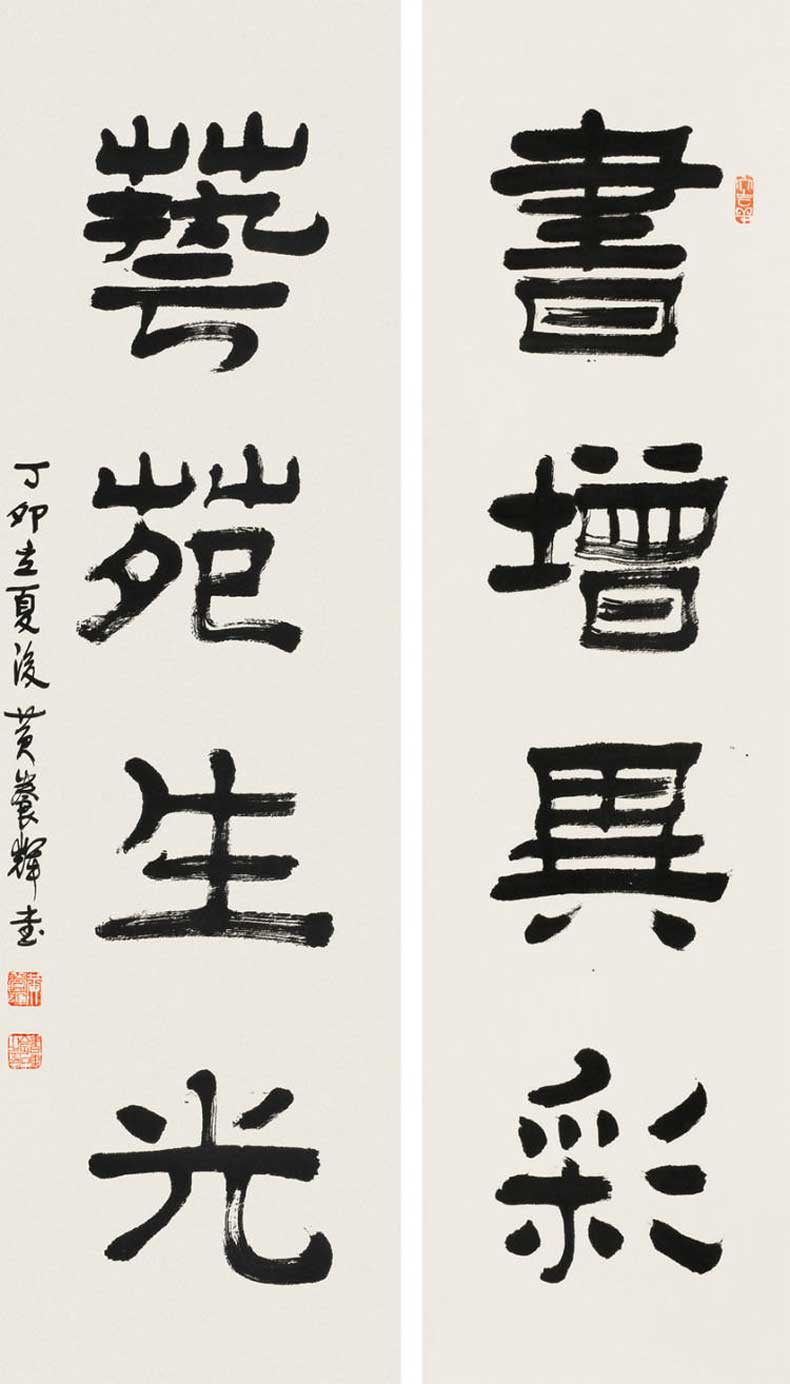 書增異彩
藝苑生光
丁卯立夏後黃養輝書